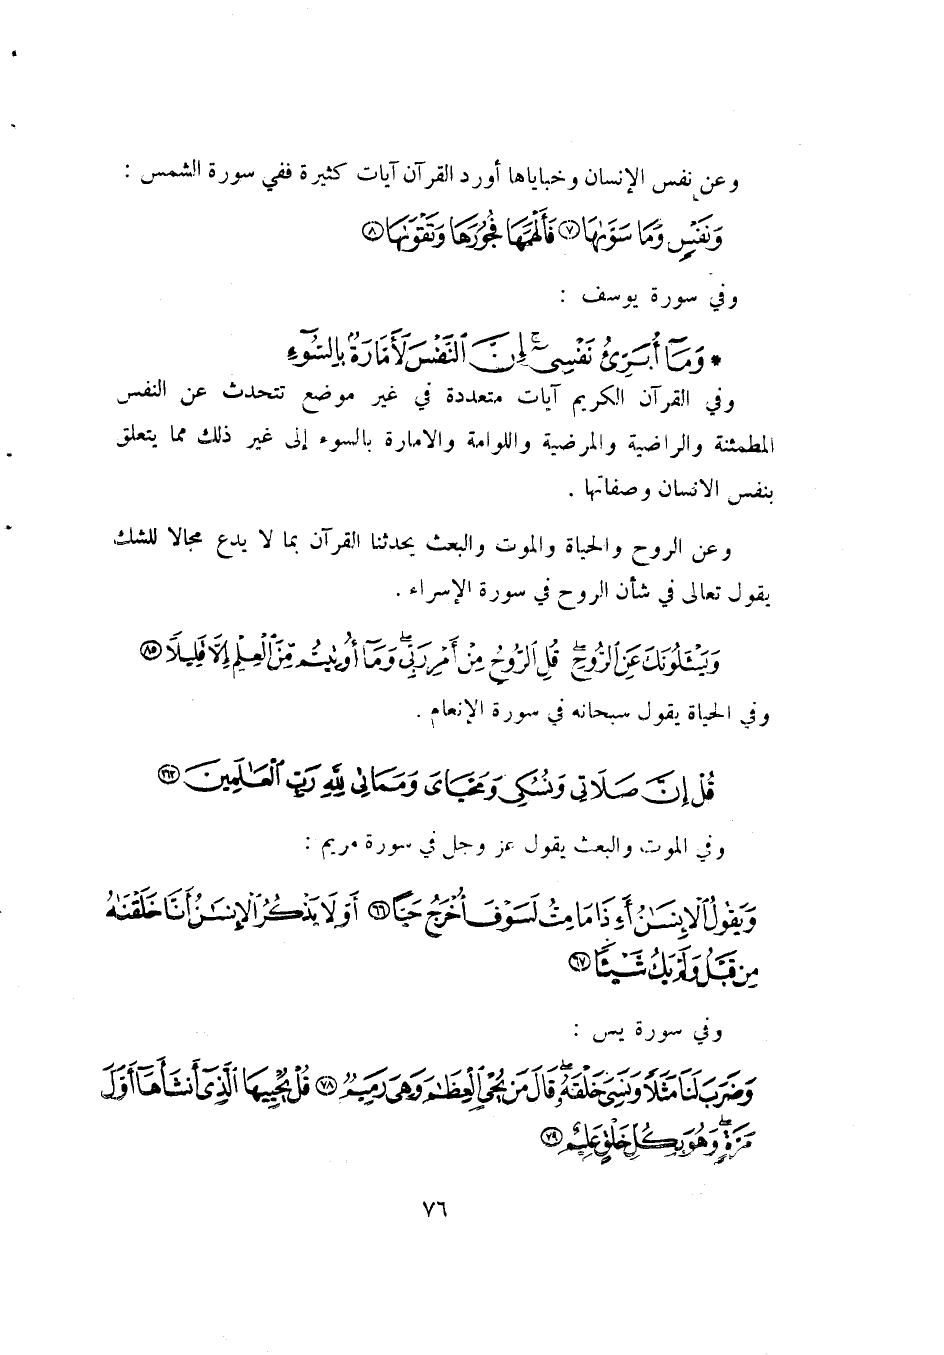 وعن نفس الإنسان وخباياها أورد القرآن آيات كثيرة ففي سورة الشمس :
وَنَفْسٍ وَمَا سَوَّىٰهَا ٧ فَأَلْهَمَهَا فُجُورَهَا وَتَقْوَىٰهَا ٨
وفي سورة يوسف :
* وَمَآ أُبَرِّئُ نَفْسِىٓ ۚ إِنَّ ٱلنَّفْسَ لَأَمَّارَةٌۢ بِٱلسُّوٓءِ
وفي القرآن الكريم آيات متعددة في غير موضع تتحدث عن النفس
المطمئنة والراضية والمرضية واللوامة والامارة بالسوء إلى غير ذلك مما يتعلق
بنفس الانسان وصفاتها .
وعن الروح والحياة والموت والبعث يحدثنا القرآن بما لا يدع مجالا للشك
يقول تعالى في شأن الروح في سورة الإسراء .
وَيَسْـَٔلُونَكَ عَنِ ٱلرُّوحِ ۖ قُلِ ٱلرُّوحُ مِنْ أَمْرِ رَبِّى وَمَآ أُوتِيتُم مِّنَ ٱلْعِلْمِ إِلَّا قَلِيلًا ٨٥
وفي الحياة يقول سبحانه في سورة الإنعام .
قُلْ إِنَّ صَلَاتِى وَنُسُكِى وَمَحْيَاىَ وَمَمَاتِى لِلَّهِ رَبِّ ٱلْعَٰلَمِينَ ١٦٢
وفي الموت والبعث يقول عز وجل في سورة مريم :
وَيَقُولُ ٱلْإِنسَٰنُ أَءِذَا مَا مِتُّ لَسَوْفَ أُخْرَجُ حَيًّا ٦٦ أَوَلَا يَذْكُرُ ٱلْإِنسَٰنُ أَنَّا خَلَقْنَٰهُ
مِن قَبْلُ وَلَمْ يَكُ شَيْـًٔا ٦٧
وفي سورة يس :
وَضَرَبَ لَنَا مَثَلًا وَنَسِىَ خَلْقَهُۥ ۖ قَالَ مَن يُحْىِ ٱلْعِظَٰمَ وَهِىَ رَمِيمٌ ٧٨ قُلْ يُحْيِيهَا ٱلَّذِىٓ أَنشَأَهَآ أَوَّلَ
مَرَّةٍ ۖ وَهُوَ بِكُلِّ خَلْقٍ عَلِيمٌ ٧٩
٧٦